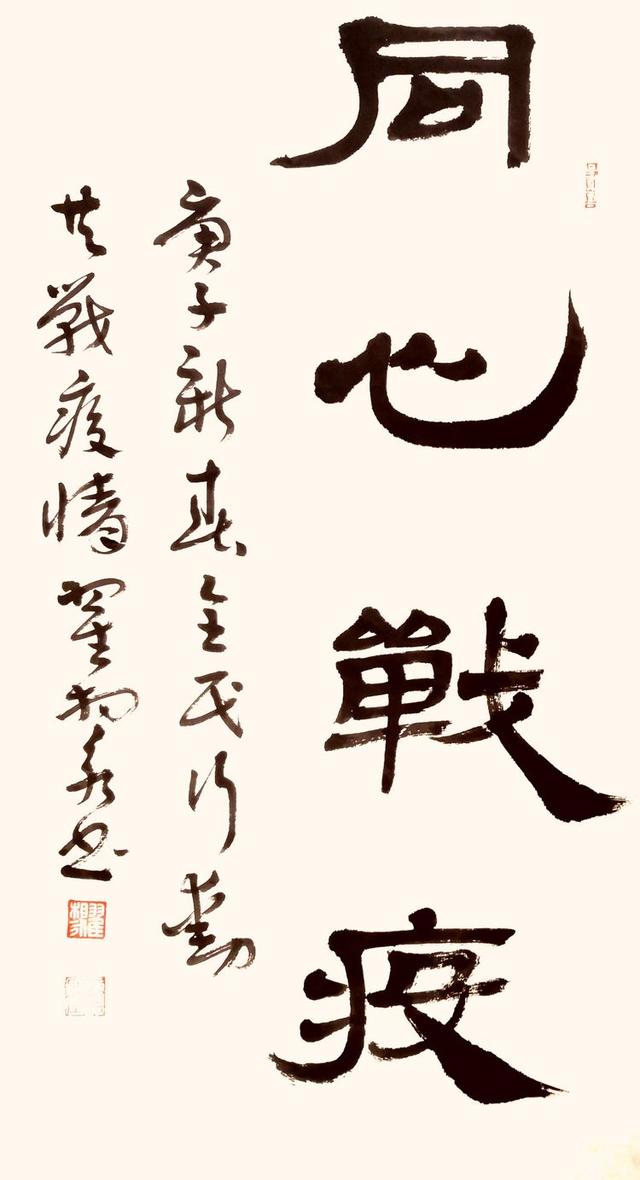 同心戰疫
庚子新春全民行動
共戰疫情翟相永书